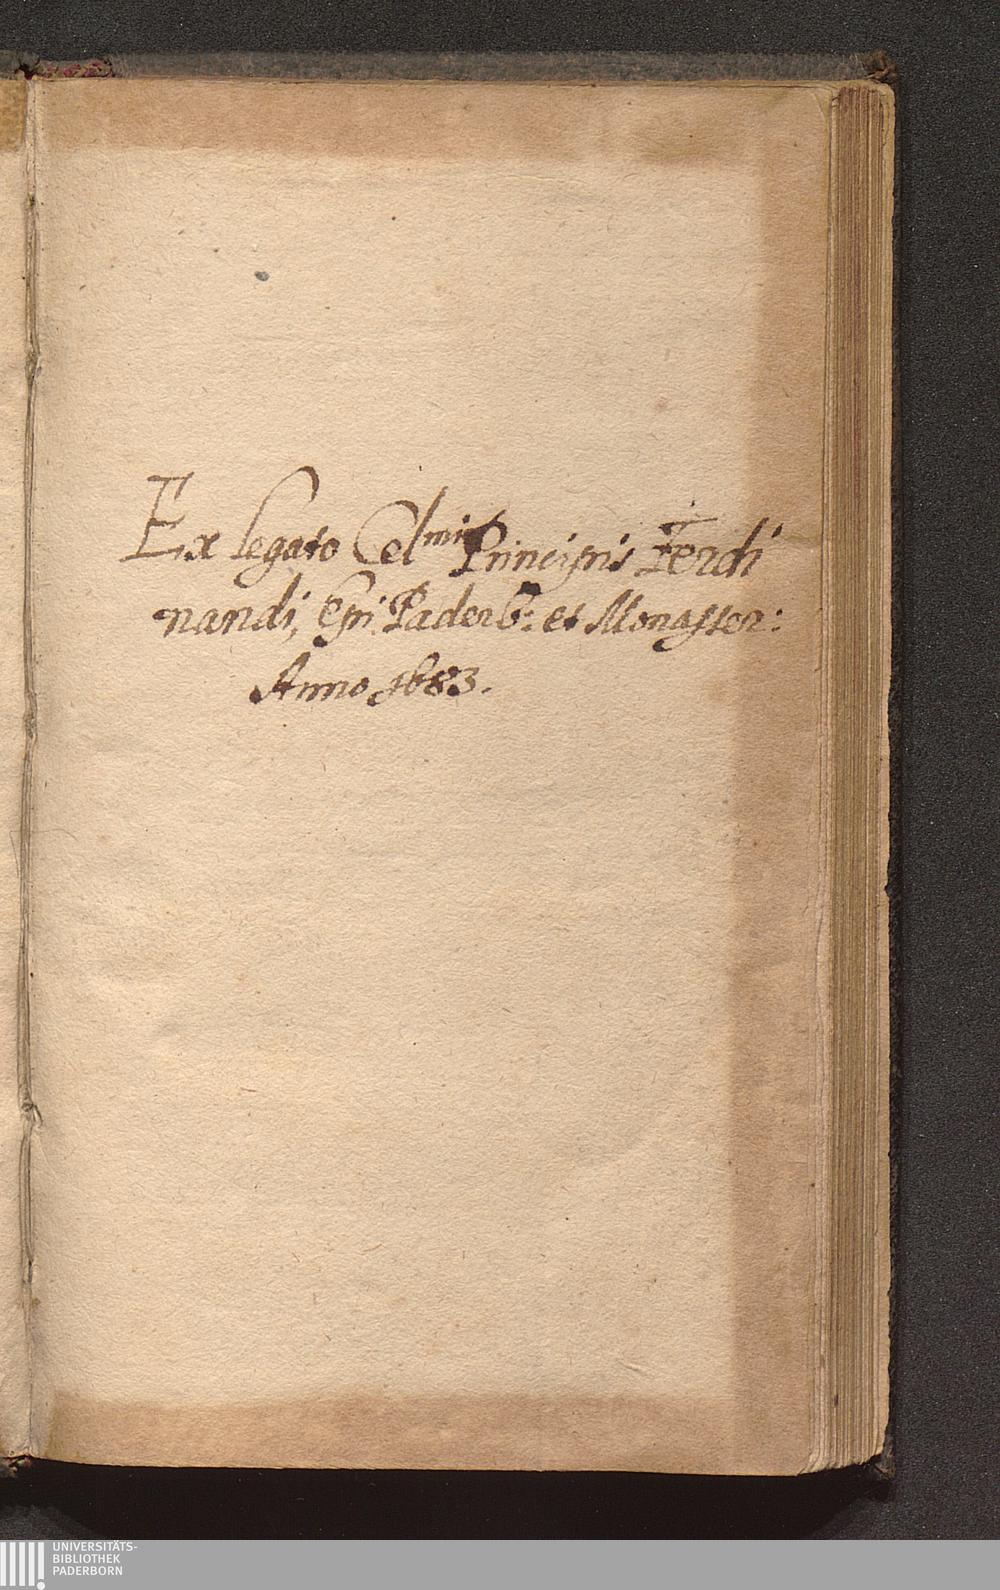 Ex legato Celmi Principis Ferdi
nandi, Epi Paderb: et Monaster:
Anno 1683.
UNIVERSITÄTS-
BIBLIOTHEK
PADERBORN